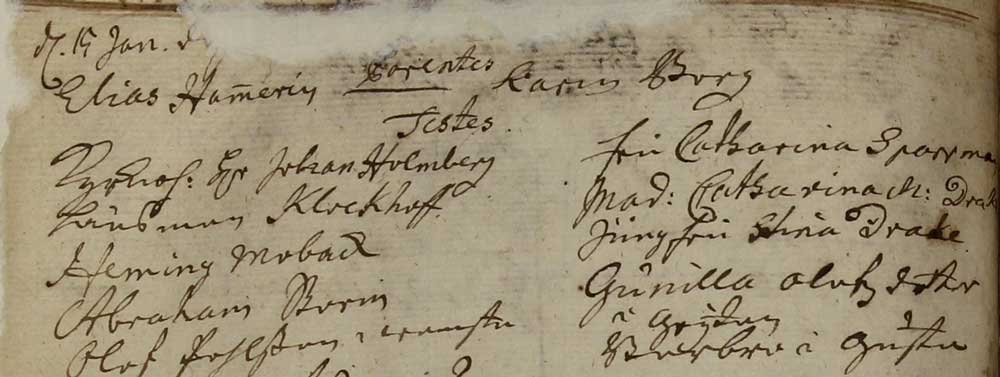 d. 15 Jan.
Elias Ham̅erin Parentes Karin Borg
Testes
Kyrkioh: Hr Johan Holmberg
Länsman Klockhoff
Heming Moback
Abraham Borin
Olof Pohlsson i
fru Catharina Sparrma
Mad: Catharina M: Drak
Jungfru Stina Drake
Gunilla Olofz dotter
i
i Gusta